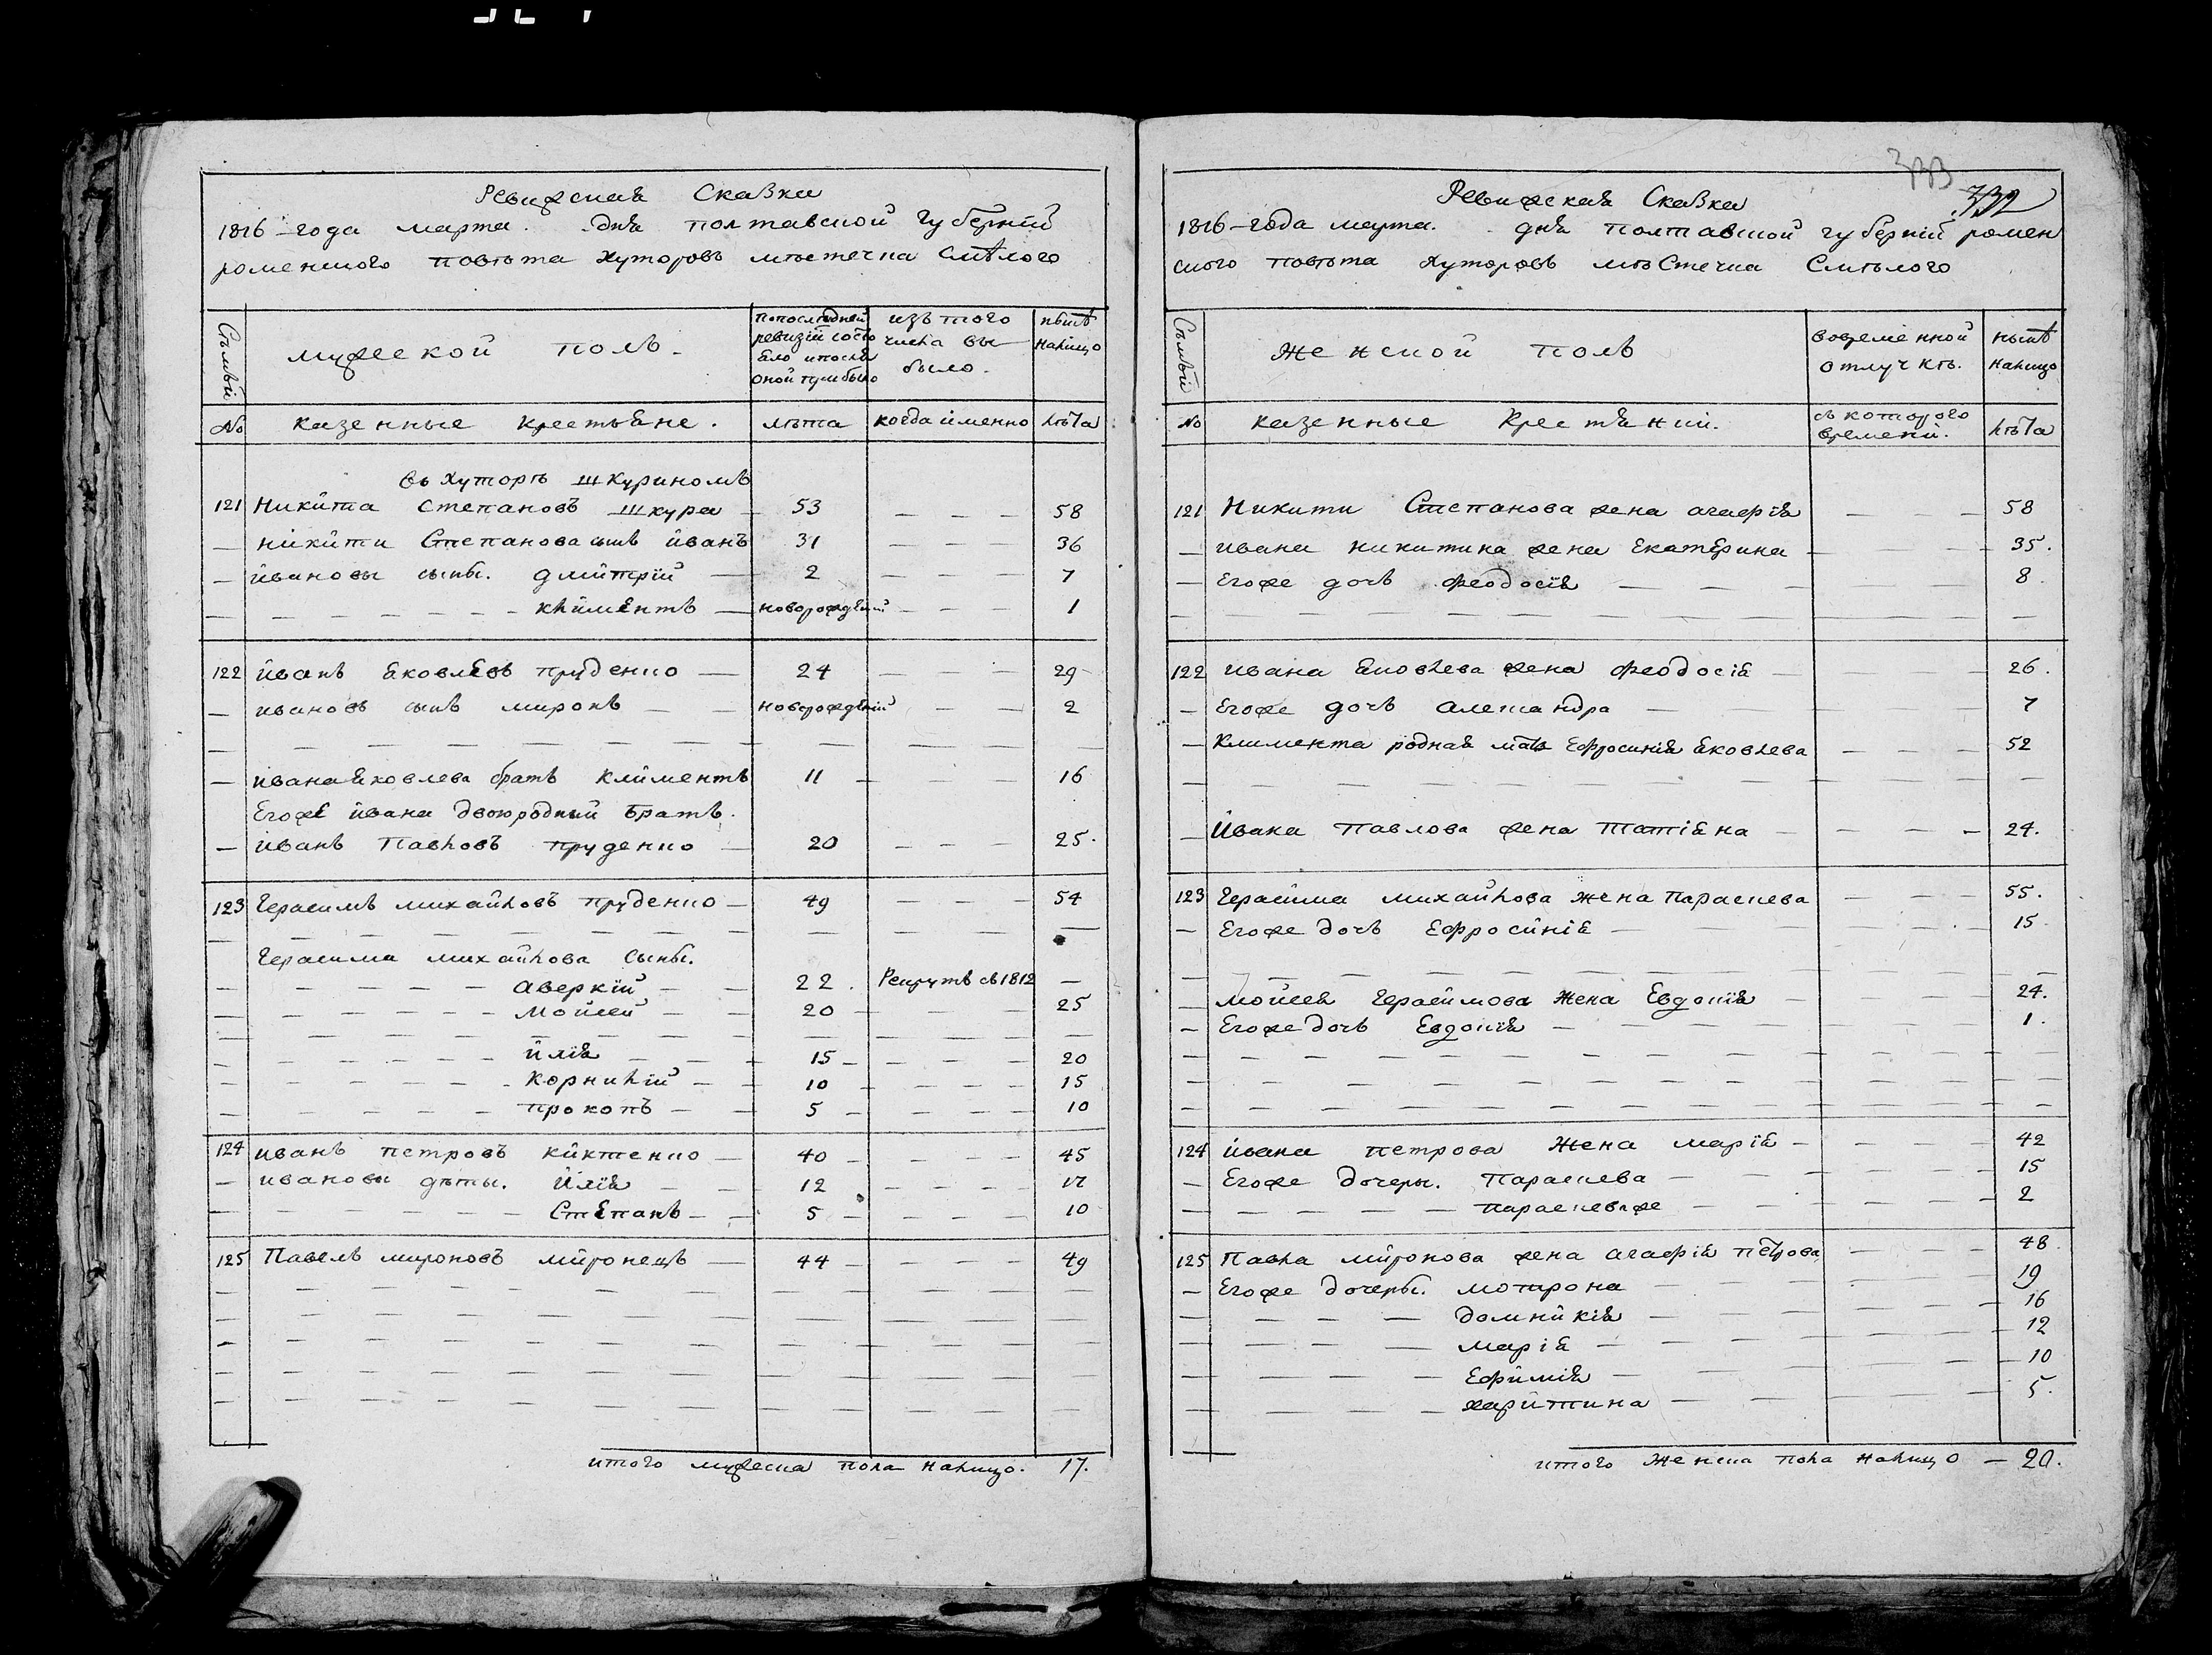 Ревизская Сказка
1816-года марта. дня полтавской губерніи
роменского повѣта хуторовъ мѣстечка Смѣлого
Сѣмьи
мужеской полъ.
попослѣдней ревизіи состояло и после оной прибыло
изъ того числа выбыло.
нынѣ налицо
№ казенные крестьяне. лѣта когда именно лѣта
въ хуторѣ шкуриномъ
121 Никита Степановъ шкура — 53 — — — 58
— никиты Степанова сынъ иванъ 31 — — — 36
— ивановы сыны. дмитрій — 2 — — — 7
— — — — — — климентъ — новорожденый — — 1
122 иванъ яковлевъ пруденко — 24 — — — 29
— ивановъ сынъ миронъ — — новорожденый — — 2
— — — — — — — — — — — —
— ивана яковлева братъ климентъ 11 — — — 16
Егоже ивана двоюродный братъ.
— иванъ Павловъ пруденко — 20 — — — 25.
123 Герасимъ михайловъ пруденко — 49 — — — 54
— — — — — — — — — — — —
Герасима михайлова сыны.
— — — — — аверкій — — 22. Рекрутъ въ 1812 —
— — — — — мойсей — — 20 — — — 25
— — — — — — — — — — — —
— — — — — илія — — 15 — — — — 20
— — — — — корнилій — — 10 — — — — 15
— — — — — прокопъ — — 5 — — — — 10
124 иванъ петровъ киктенко — 40 — — — — 45
— ивановы дѣты. илія — — 12 — — — — 17
— — — — — — Степанъ — — 5 — — — — 10
125 Павелъ мироновъ миронецъ — 44 — — — — 49
итого мужеска пола налицо. 17.
333
732
Ревизская Сказка
1816-года марта. дня полтавской губерніи ромен
ского повѣта хуторовъ мѣстечка Смѣлого
Сѣмьи
женской полъ
вовременной отлучкѣ.
нынѣ налицо
№ казенные крестяніи. съ которого времени. лѣта
121 Никиты Степанова жена агафія — — — 58
— ивана никитина жена Екатерина — — 35.
— Егоже дочь феодосія — — — 8.
— — — — — — — — — — — —
122 ивана яковлева жена феодосія — — — 26.
— Егоже дочь александра — — — 7
— Климента родная мать Ефросинія яковлева — — — 52
— — — — — — — — — — — —
— ивана Павлова жена татіяна — — — — 24.
123 Герасима михайлова жена параскева — — — 55.
— Егоже дочь Ефросинія — — — 15.
— — — — — — — — — — — —
— мойсея Герасимова жена Евдокія — — — 24.
— Егоже дочь Евдокія — — — 1.
124 ивана петрова жена марія — — — — 42
— Егоже дочеры. параскева — — — — 15
— — — — — параскеваже — — — — 2
125 Павла миронова жена агафія петрова — — — 48.
— Егоже дочеры. мотрона — — — 19
— — — — домникія — — — 16
— — — — марія — — — 12
— — — — Ефимія — — — 10
— — — — харитина — — — 5.
итого женска пола налицо — 20.